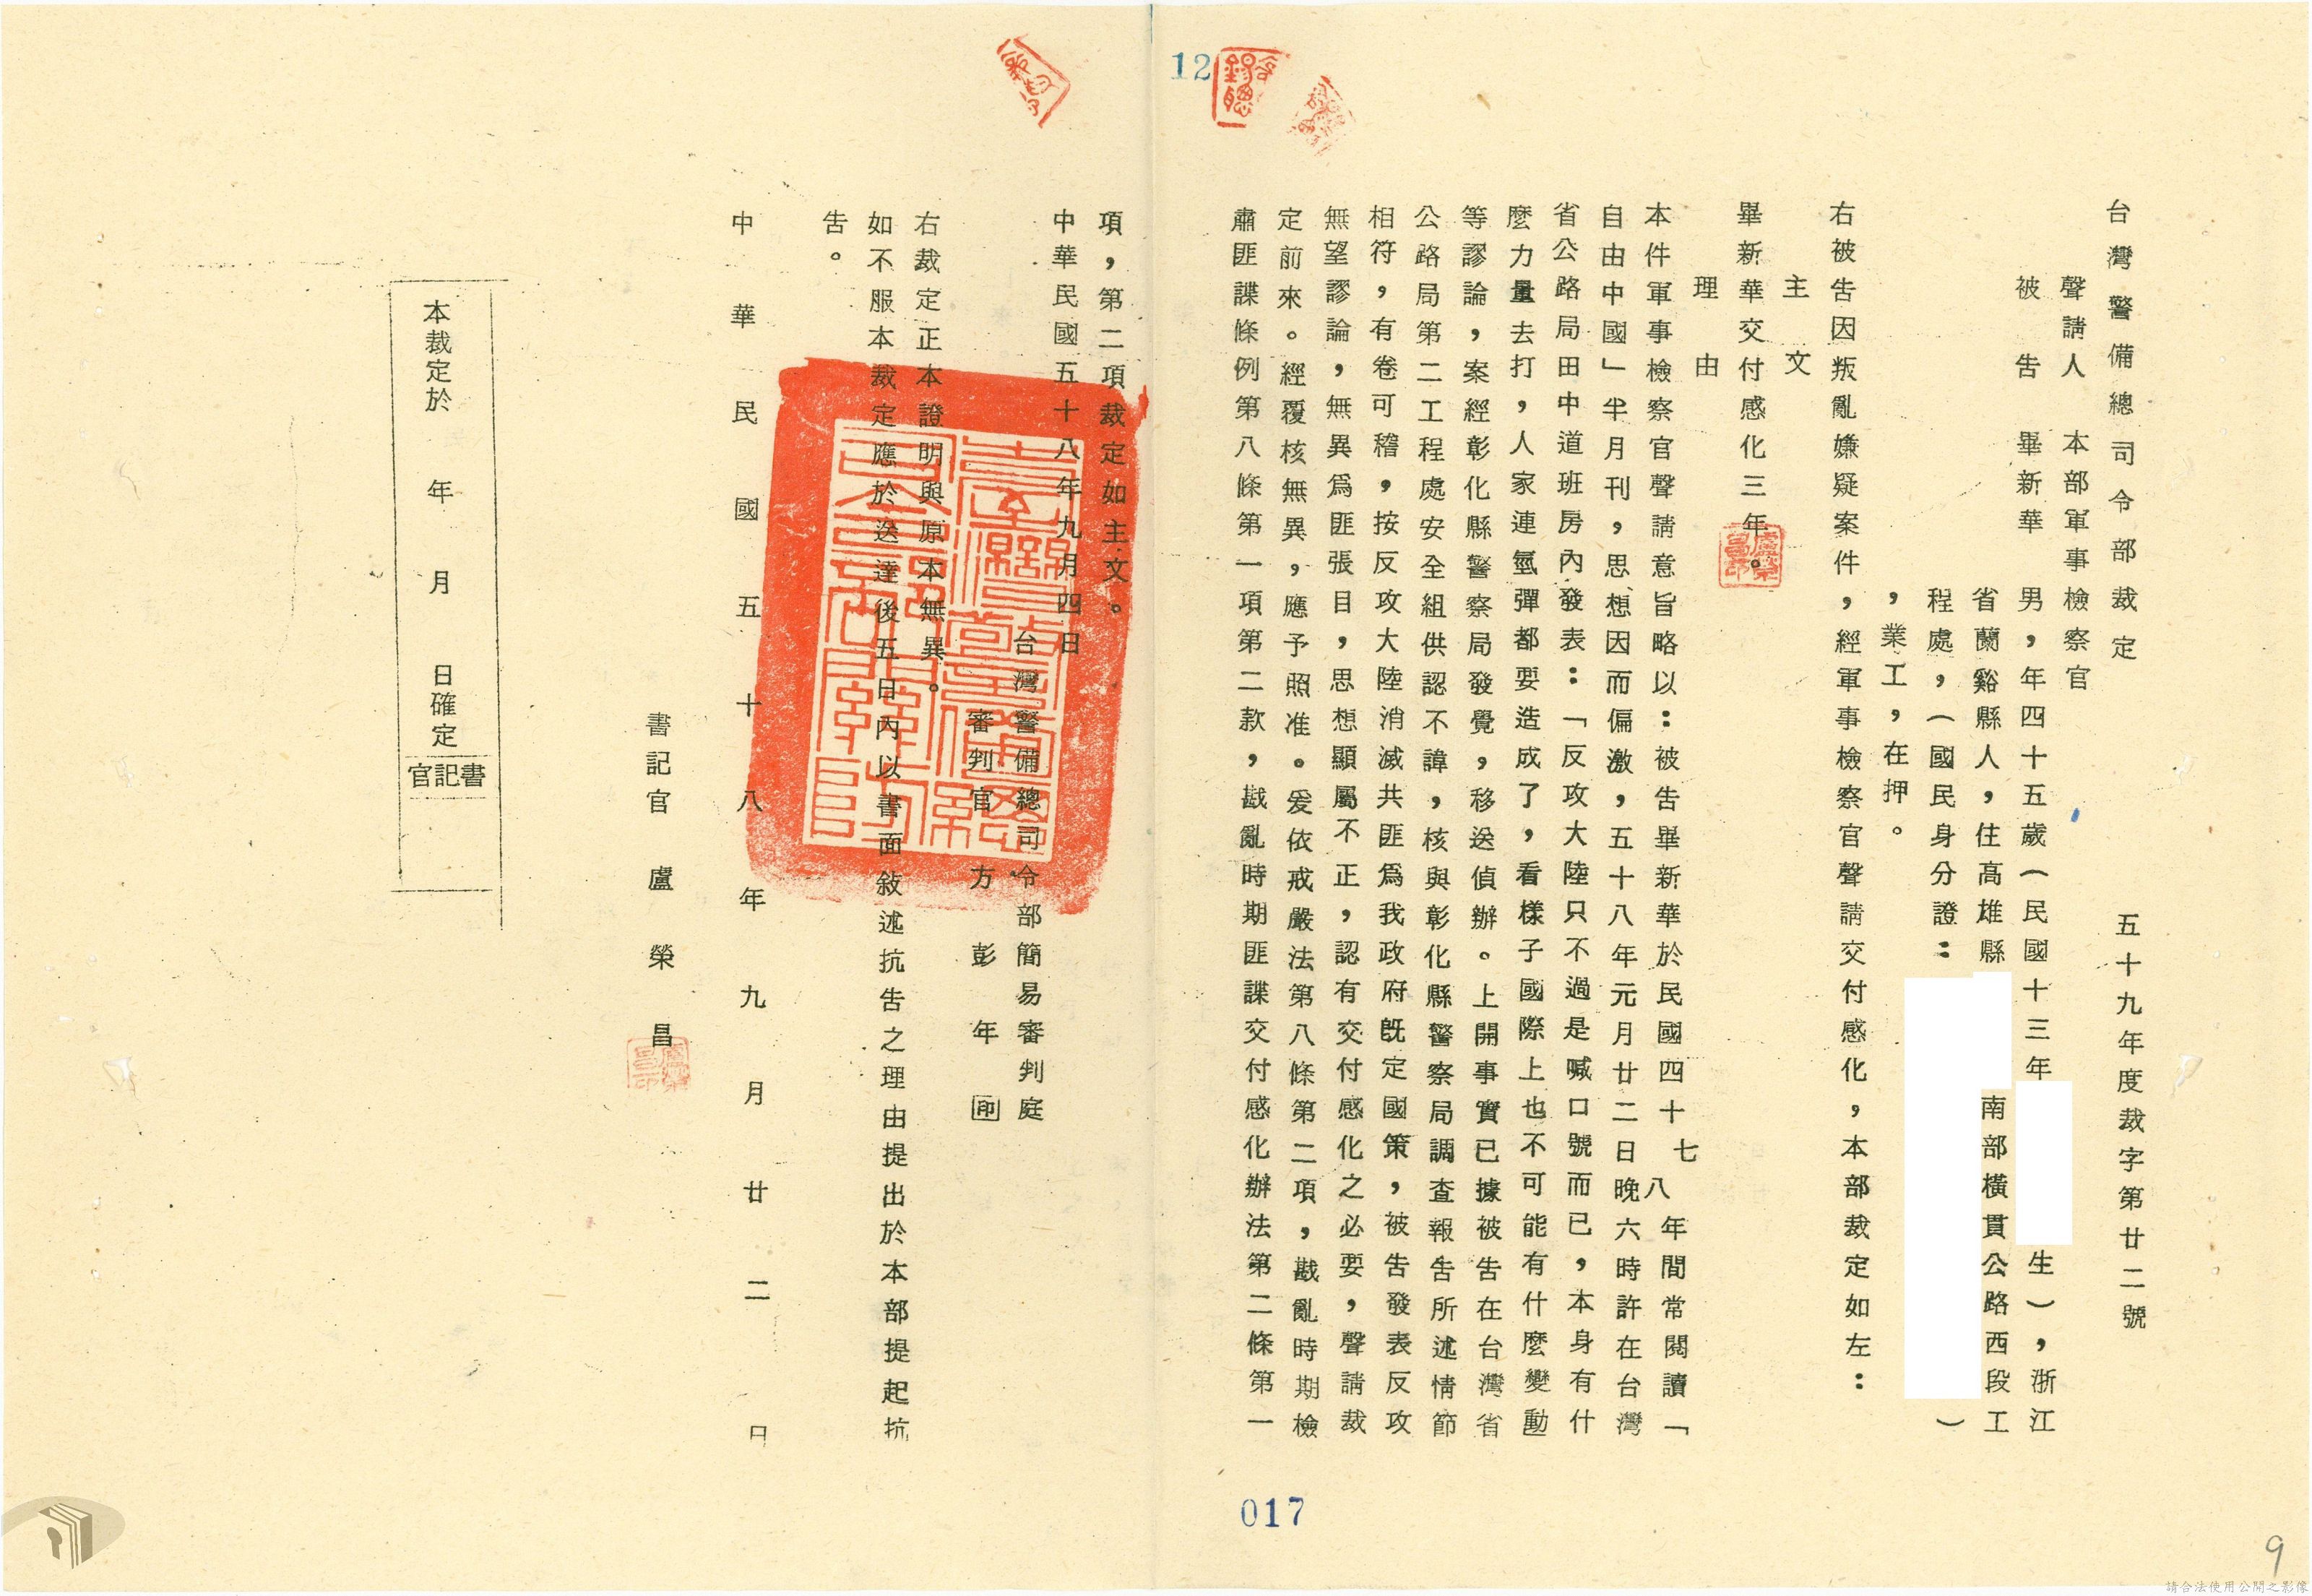 台灣警備總司令部裁定
五十九年度裁字第廿二號
聲請人 本部軍事檢察官
被告 畢新華 男，年四十五歲（民國十三年
生），浙江
省蘭谿縣人，住高雄縣
南部橫貫公路西段工
程處，（國民身分證：
）
，業工，在押。
右被告因叛亂嫌疑案件，經軍事檢察官聲請交付感化，本部裁定如左：
主文
畢新華交付感化三年。
理由
本件軍事檢察官聲請意旨略以：被告畢新華於民國四十七八年間常閱讀「
自由中國」半月刊，思想因而偏激，五十八年元月廿二日晚六時許在台灣
省公路局田中道班房內發表：「反攻大陸只不過是喊口號而已，本身有什
麼力量去打，人家連氫彈都要造成了，看樣子國際上也不可能有什麼變動
等謬論，案經彰化縣警察局發覺，移送偵辦。上開事實已據被告在台灣省
公路局第二工程處安全組供認不諱，核與彰化縣警察局調查報告所述情節
相符，有卷可稽，按反攻大陸消滅共匪為我政府既定國策，被告發表反攻
無望謬論，無異為匪張目，思想顯屬不正，認有交付感化之必要，聲請裁
定前來。經覆核無異，應予照准。爰依戒嚴法第八條第二項，戡亂時期檢
肅匪諜條例第八條第一項第二款，戡亂時期匪諜交付感化辦法第二條第一
項，第二項裁定如主文。
中華民國五十八年九月四日
台灣警備總司令部簡易審判庭
審判官 方彭年 印
右裁定正本證明與原本無異。
如不服本裁定應於送達後五日內以書面敘述抗告之理由提出於本部提起抗
告。
中華民國五十八年九月廿二日
書記官 盧榮昌
本裁定於 年 月 日確定
書記官
12
017
9
請合法使用公開之影像